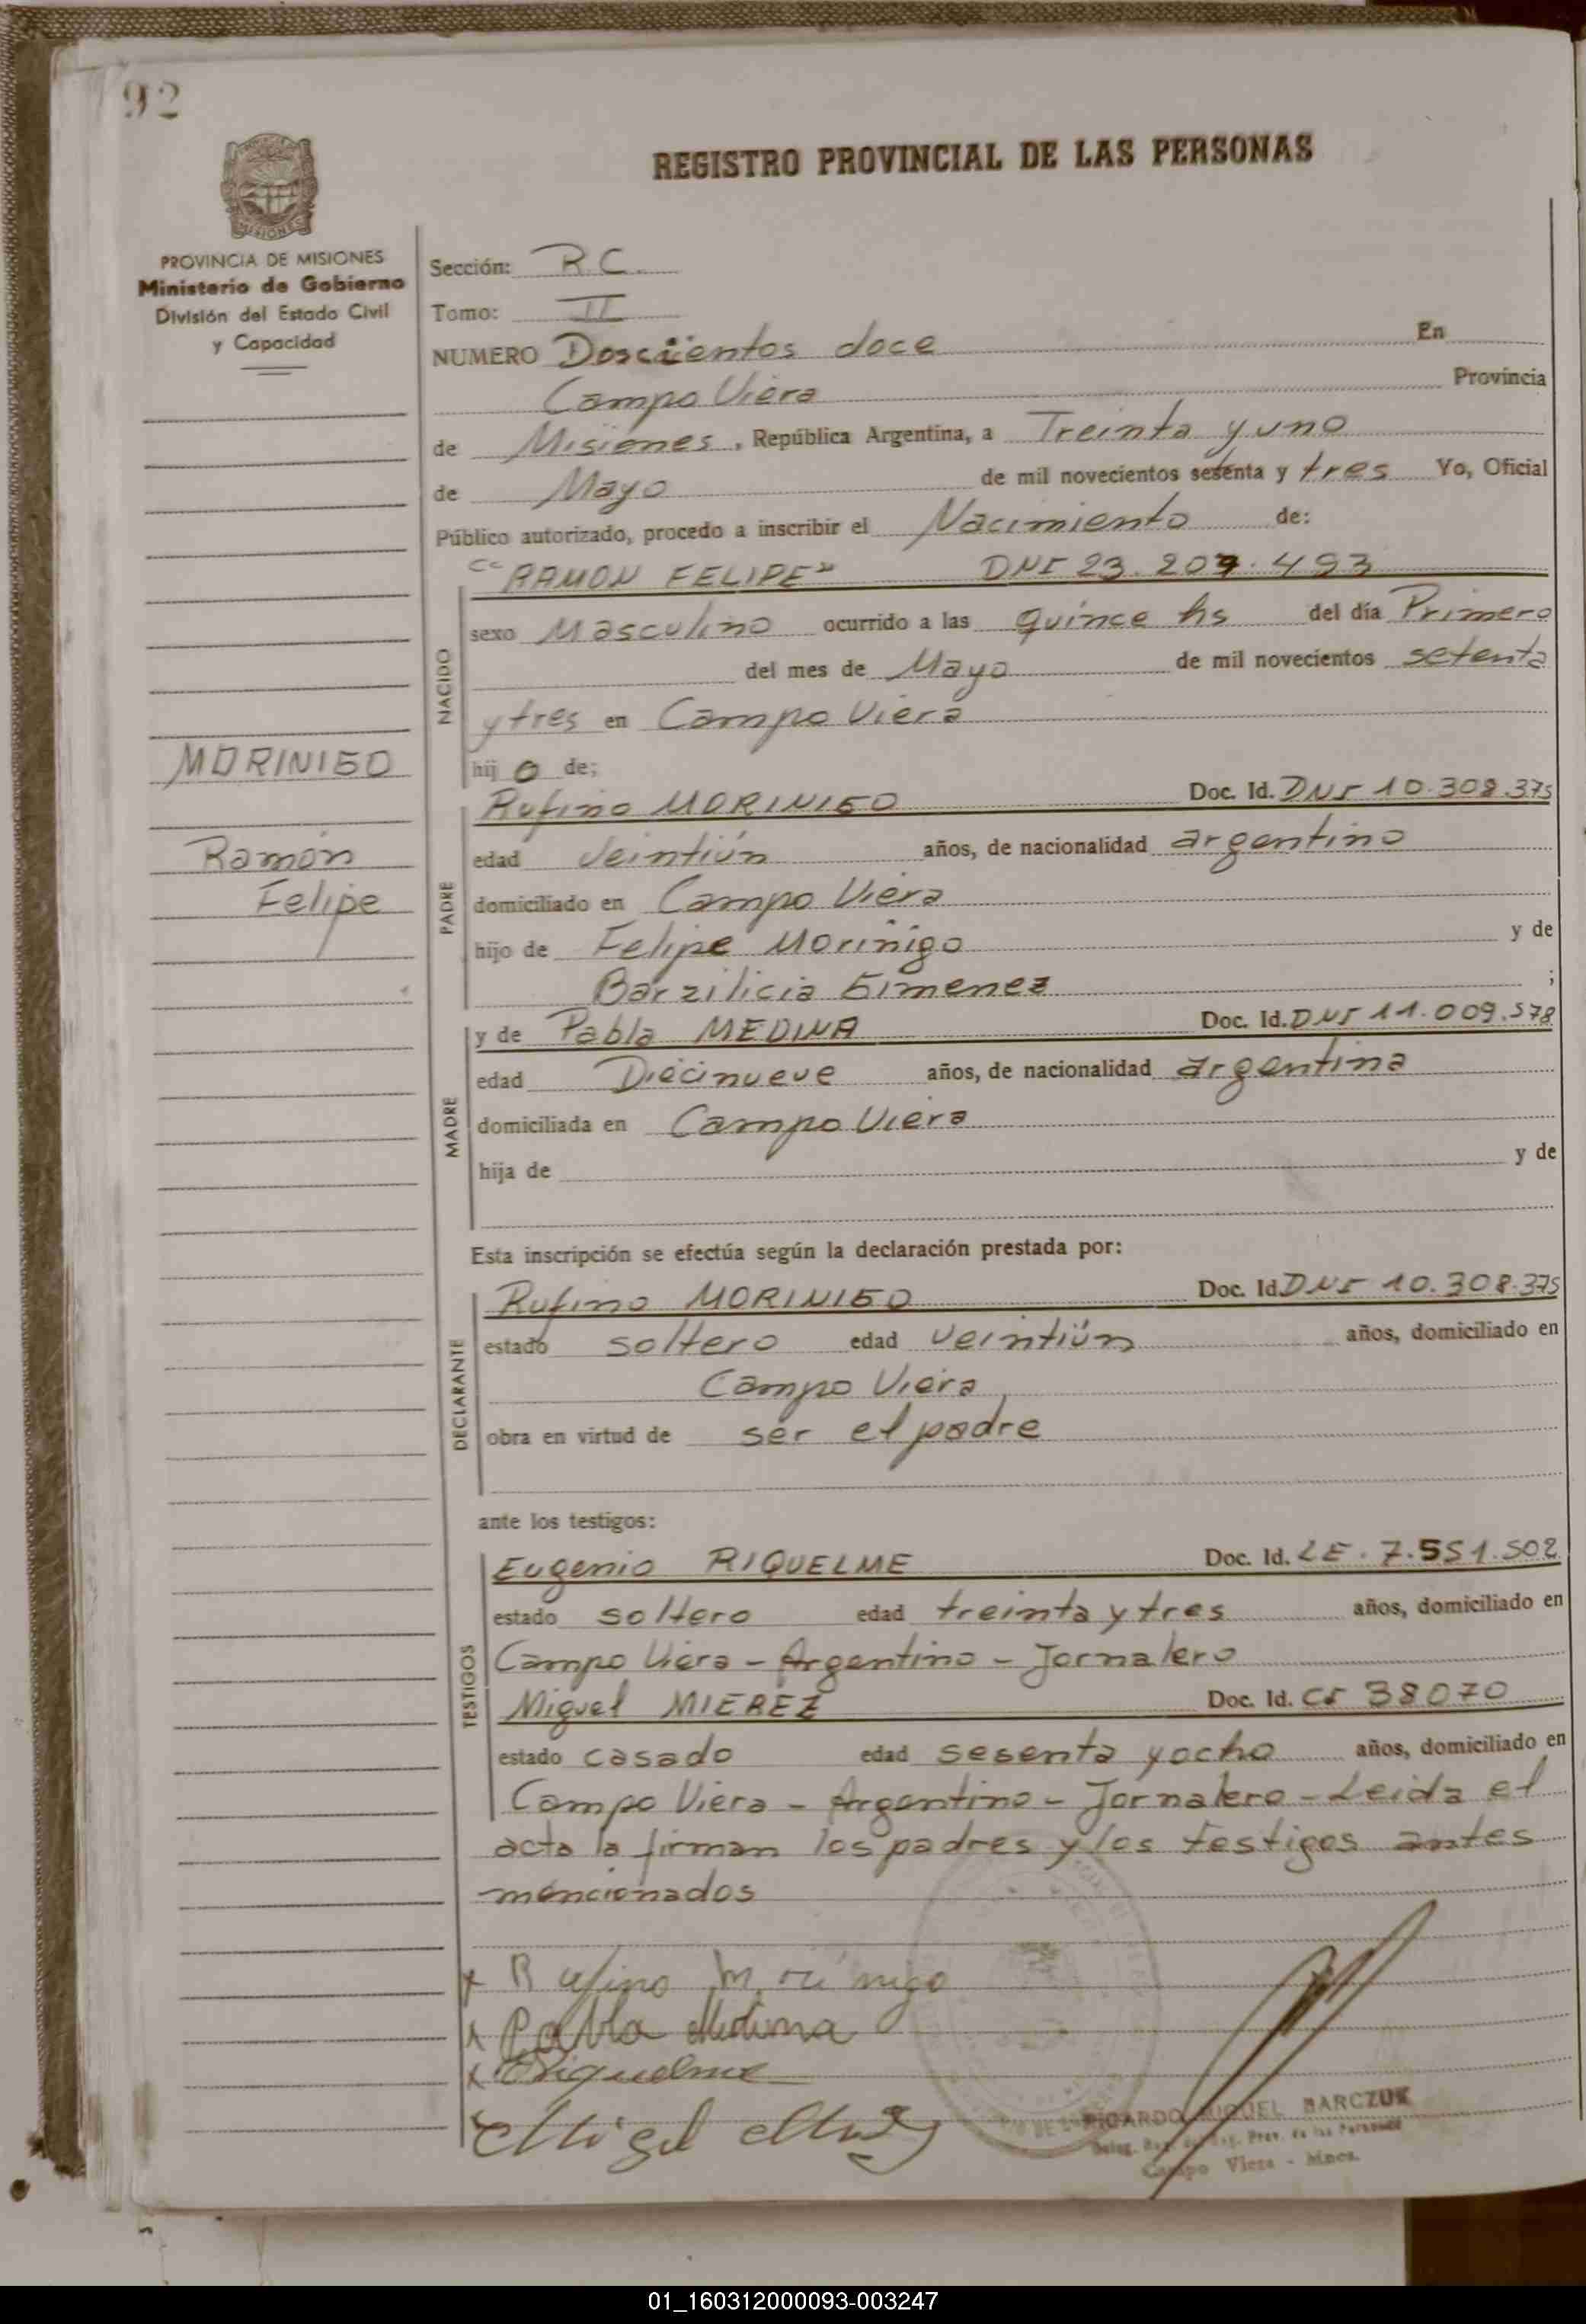 92
REGISTRO PROVINCIAL DE LAS PERSONAS
MISIONES
PROVINCIA DE MISIONES
Ministerio de Gobierno
División del Estado Civil
y Capacidad
Sección: R.C.
Tomo: II
NUMERO Doscientos doce En
Campo Viera Provincia
de Misiones, República Argentina, a Treinta y uno
de Mayo de mil novecientos setenta y tres Yo, Oficial
Público autorizado, procedo a inscribir el Nacimiento de:
"RAMON FELIPE" DNI 23.207.493
NACIDO
sexo Masculino ocurrido a las quince hs del día Primero
del mes de Mayo de mil novecientos setenta
y tres en Campo Viera
hijo de;
MORINIGO
Ramón
Felipe
PADRE
Rufino MORINIGO Doc. Id. DNI 10.308.375
edad Veintiún años, de nacionalidad argentino
domiciliado en Campo Viera
hijo de Felipe Moriñigo y de
Barzilicia Gimenez ;
MADRE
y de Pabla MEDINA Doc. Id. DNI 11.009.578
edad Diecinueve años, de nacionalidad argentina
domiciliada en Campo Viera
hija de y de
Esta inscripción se efectúa según la declaración prestada por:
DECLARANTE
Rufino MORINIGO Doc. Id DNI 10.308.375
estado soltero edad veintiún años, domiciliado en
Campo Viera
obra en virtud de ser el padre
ante los testigos:
TESTIGOS
Eugenio RIQUELME Doc. Id. LE. 7.551.502
estado soltero edad treinta y tres años, domiciliado en
Campo Viera - Argentino - Jornalero
Miguel MIEREZ Doc. Id. CI 38070
estado casado edad sesenta y ocho años, domiciliado en
Campo Viera - Argentino - Jornalero - Leida el
acta la firman los padres y los testigos antes
mencionados
x Rufino Moriñigo
x Pabla Medina
x Riquelme
x Migel
RICARDO MIGUEL BARCZUK
Deleg. Prov. de las Personas
Campo Viera - Mnes.
01_160312000093-003247